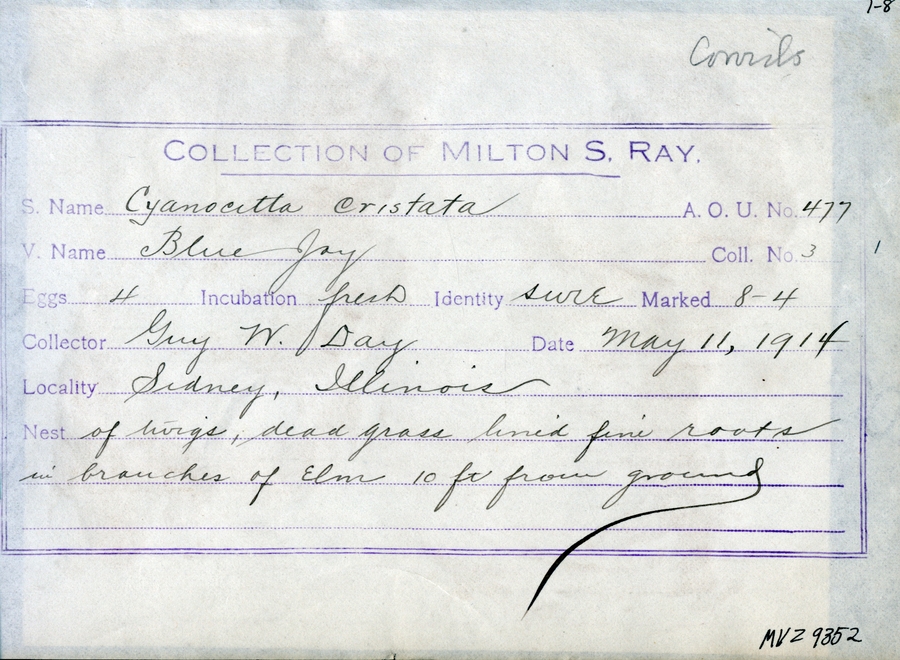 1-8
Corvids
COLLECTION OF MILTON S. RAY.
S. Name Cyanocitta cristata A. O. U. No. 477
V. Name Blue Jay Coll. No. 3
1
Eggs 4 Incubation fresh Identity sure Marked 8-4
Collector Guy W. Day Date May 11, 1914
Locality Sidney, Illinois
Nest of twigs, dead grass lined fine roots
in branches of Elm 10 ft from ground
MVZ 9352